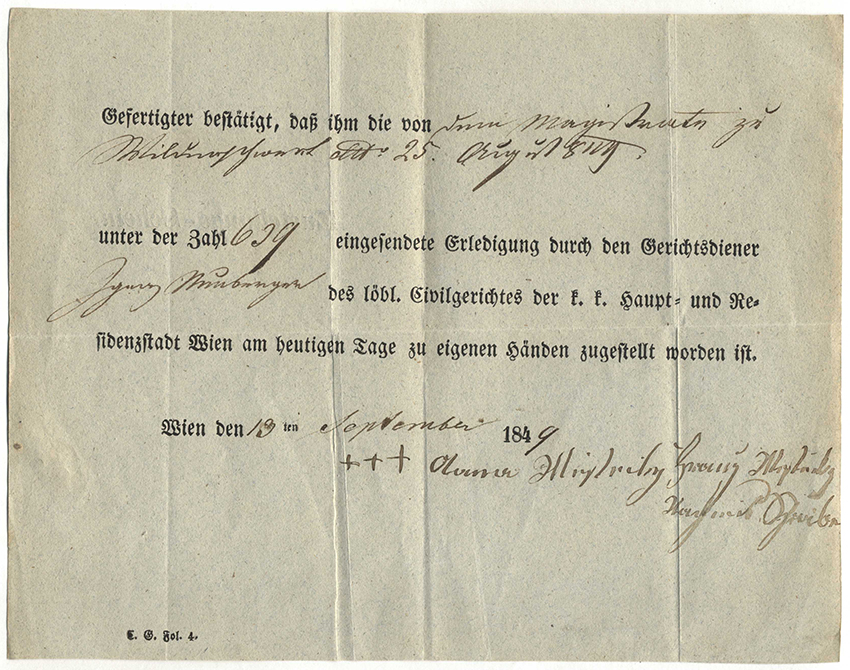 Gefertigter bestätigt, daß ihm die von dem Magistrate zu
Wildenschwert ddto 25. August 849.
unter der Zahl 639 eingesendete Erledigung durch den Gerichtsdiener
Ignaz Neuberger des löbl. Civilgerichtes der k. k. Haupt- und Re-
sidenzstadt Wien am heutigen Tage zu eigenen Händen zugestellt worden ist.
Wien den 13 ten September 1849
+++ Anna Franz
C. G. Fol. 4.